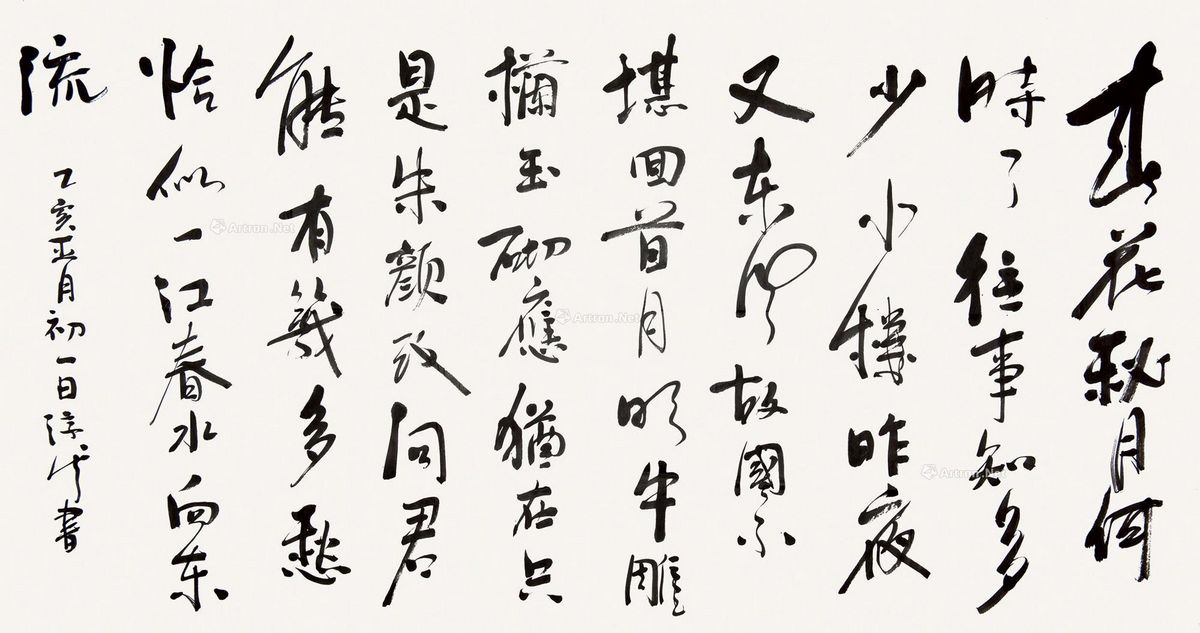 春花秋月何
時了往事知多
少小樓昨夜
又东风故國不
堪回首月明中雕
欄玉砌應猶在只
是朱颜改问君
能有幾多愁
恰似一江春水向东
流
乙亥正月初一日書
Artron.Net
Artron.Net
Artron.Net